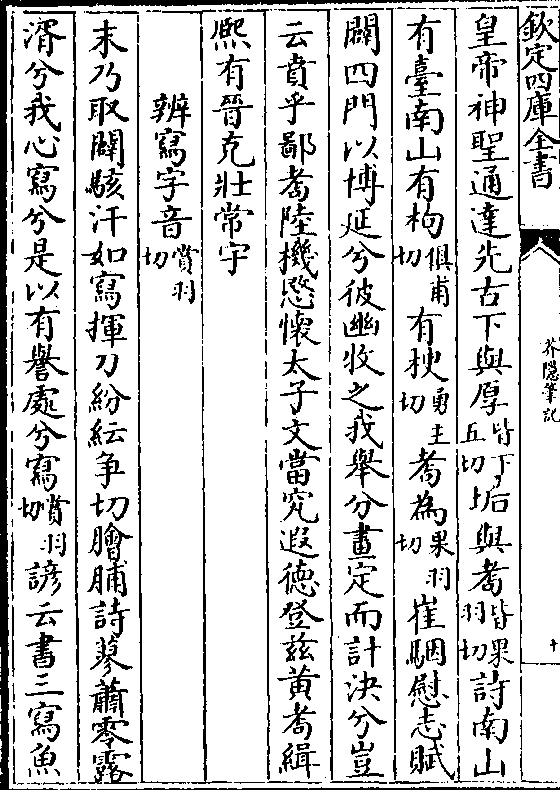 欽定四庫全書
芥隱筆記
十
皇帝神聖通達先古下與厚皆下五切垢與耇皆果羽切詩南山
有臺南山有枸俱甫切有楰勇主切耇為果羽切崔駰慰志賦
闢四門以博延兮彼幽牧之我舉分畫定而計決兮豈
云賁乎鄙耇陸機愍懷太子文當究遐德登茲黃耇緝
熙有晉克壯常宇
辨寫字音賞羽切
末乃取闢駭汗如寫揮刀紛紜爭切膾脯詩蓼蕭零露
湑兮我心寫兮是以有譽處兮寫賞羽切諺云書三寫魚